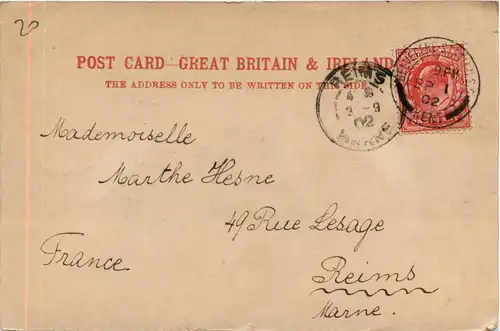 20
POST CARD—GREAT BRITAIN & IRELAND
THE ADDRESS ONLY TO BE WRITTEN ON THIS SIDE.
REIMS
3 - 9
02
MARNE
9 PM
SP 1
02
KENT
Mademoiselle
Marthe Hesne
49 Rue Lesage
France
Reims
Marne.